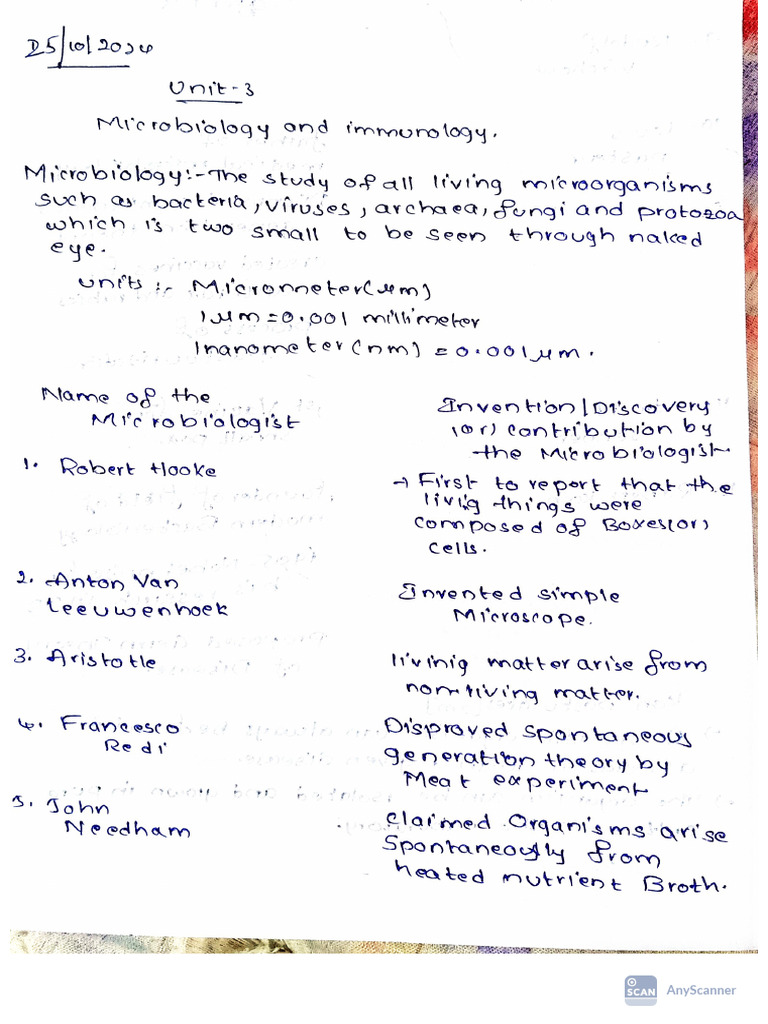 25/10/2024
Unit-3
Microbiology and immunology.
Microbiology:-The study of all living microorganisms
such as bacteria, viruses, archaea, fungi and protozoa
which is two small to be seen through naked
eye.
units :- Micronmeter(μm)
1 μm = 0.001 millimeter
1 nanometer (nm) = 0.001 μm.
Name of the
Microbiologist
Invention/Discovery
(or) contribution by
the Microbiologist
1. Robert Hooke
→ First to report that the
living things were
composed of Boxes(or)
cells.
2. Anton Van
Leeuwenhoek
Invented simple
Microscope.
3. Aristotle
livinig matter arise from
non-living matter.
4. Francesco
Redi
Disproved spontaneous
generation theory by
Meat experiment
5. John
Needham
claimed Organisms arise
Spontaneously from
heated nutrient Broth.
SCAN AnyScanner